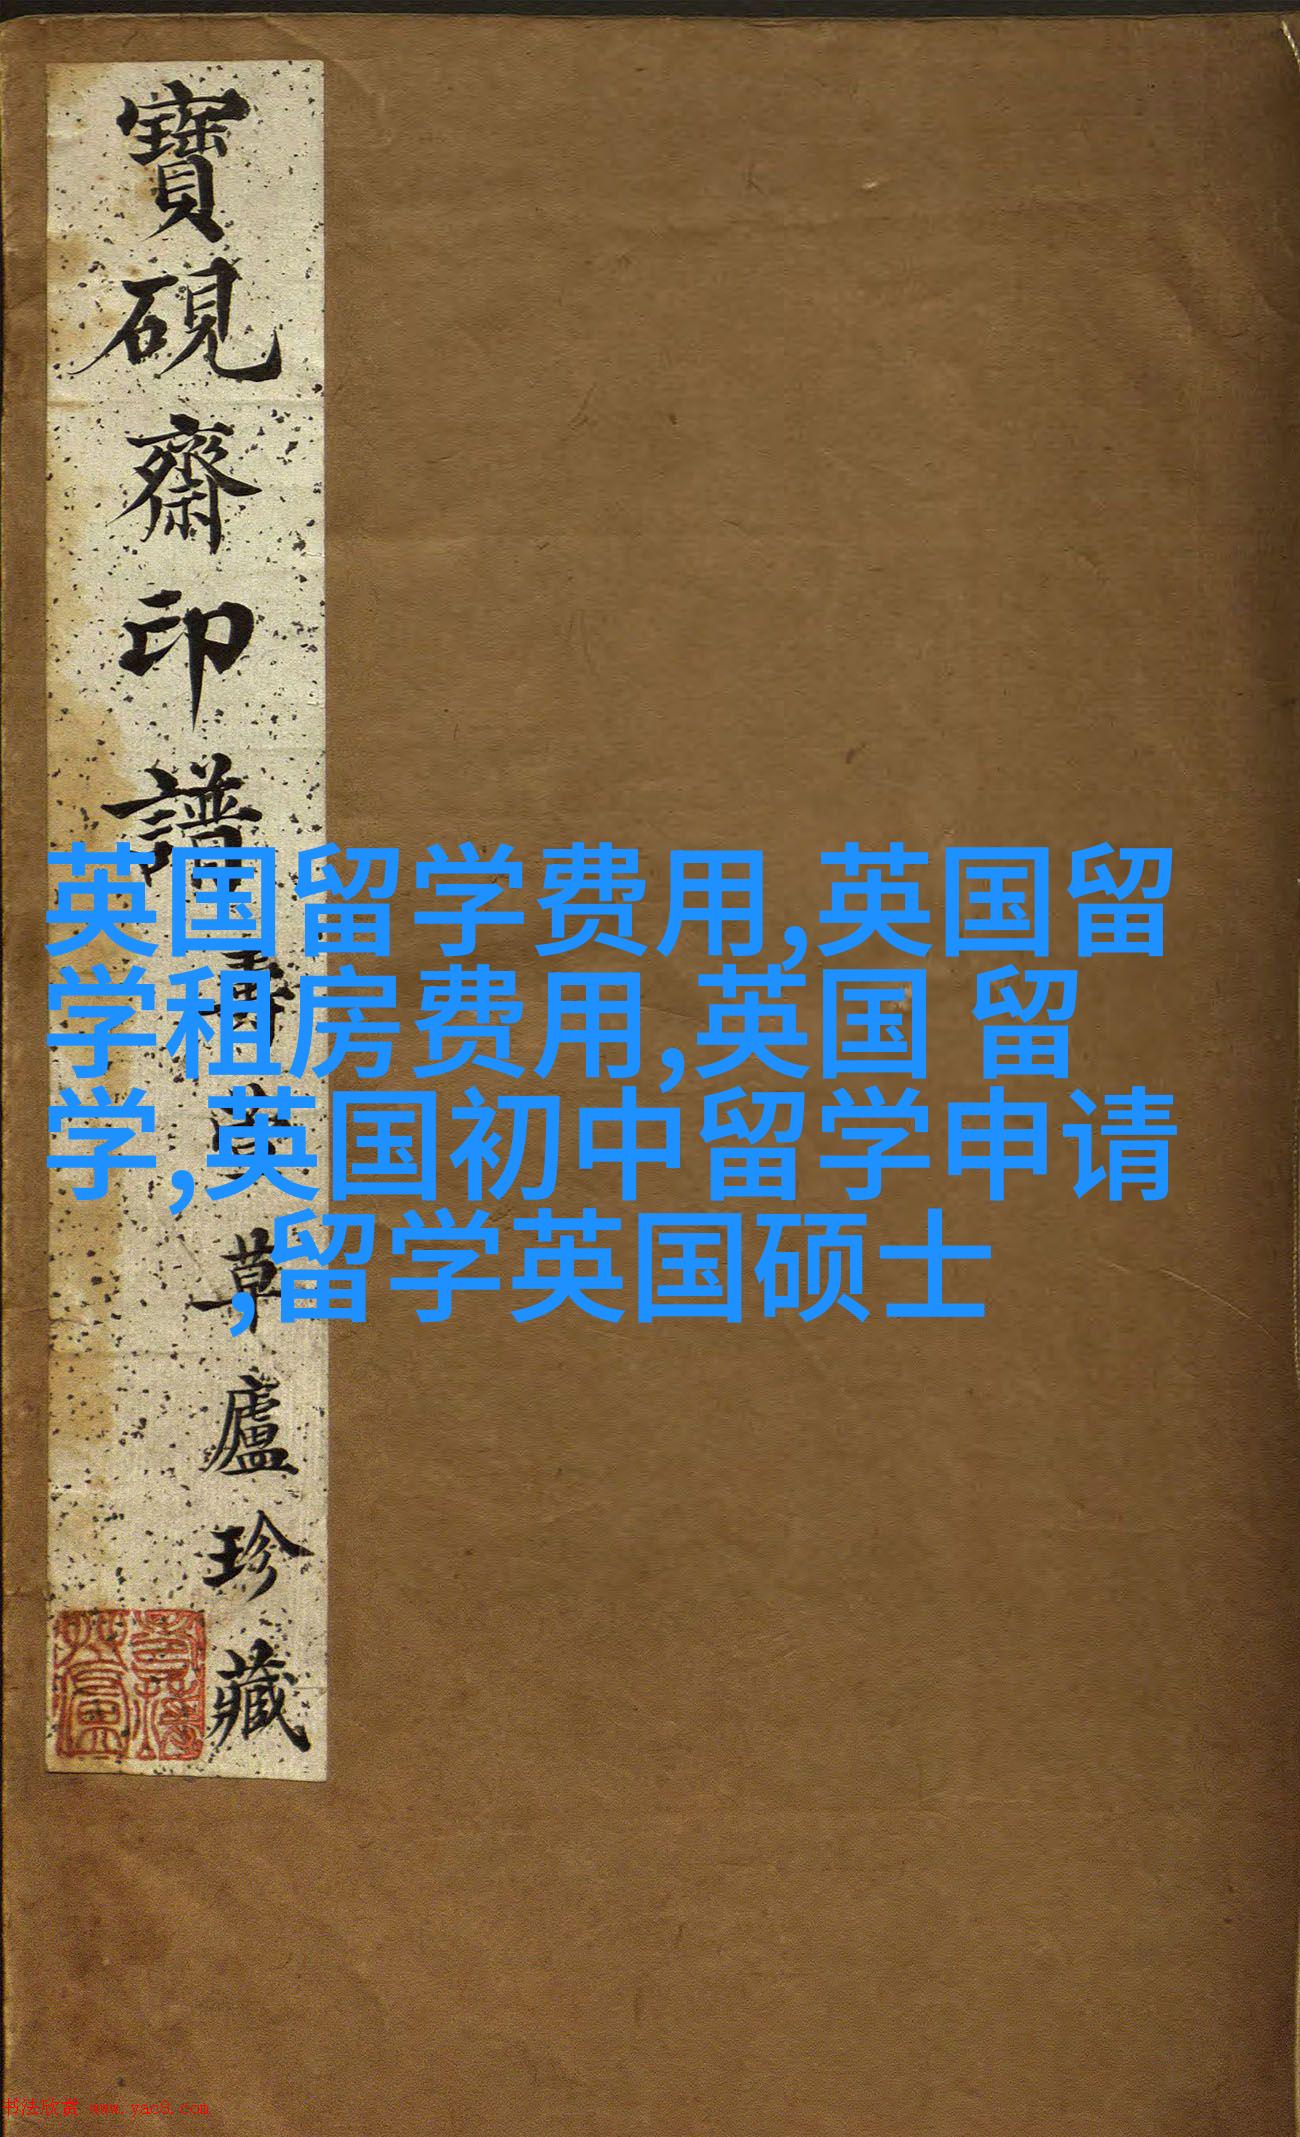 寶硯齋印譜
草廬珍藏
英国留学费用,英国留
学租房费用,英国 留
学,英国初中留学申请
,留学英国硕士
书法欣赏 www.yac8.com